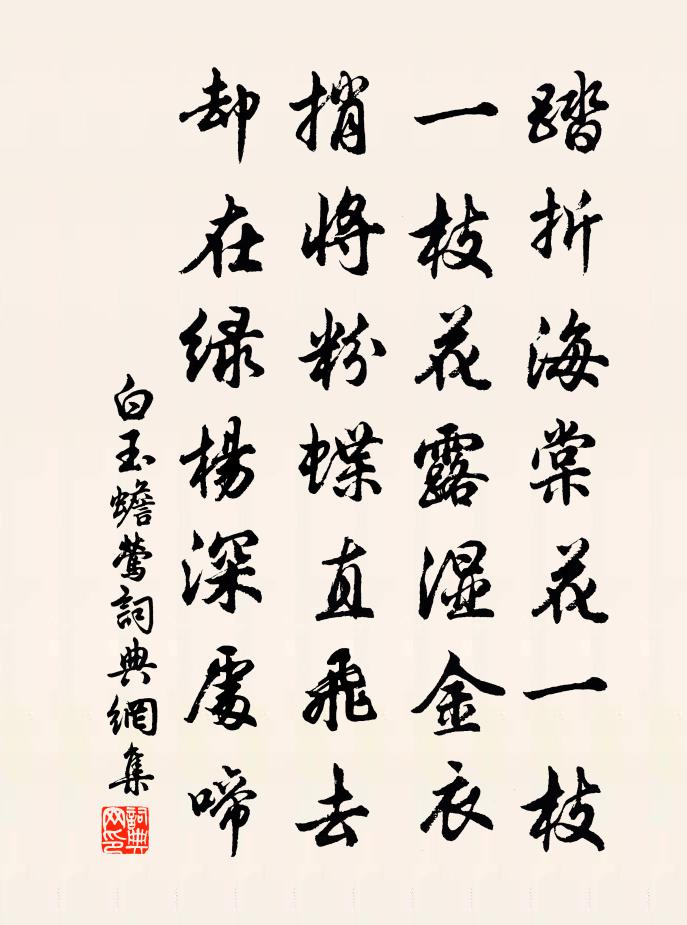 踏折海棠花一枝
一枝花露湿金衣
捎將粉蝶直飛去
却在緑楊深處啼
白玉蟾鶯詞典網集
詞典网印